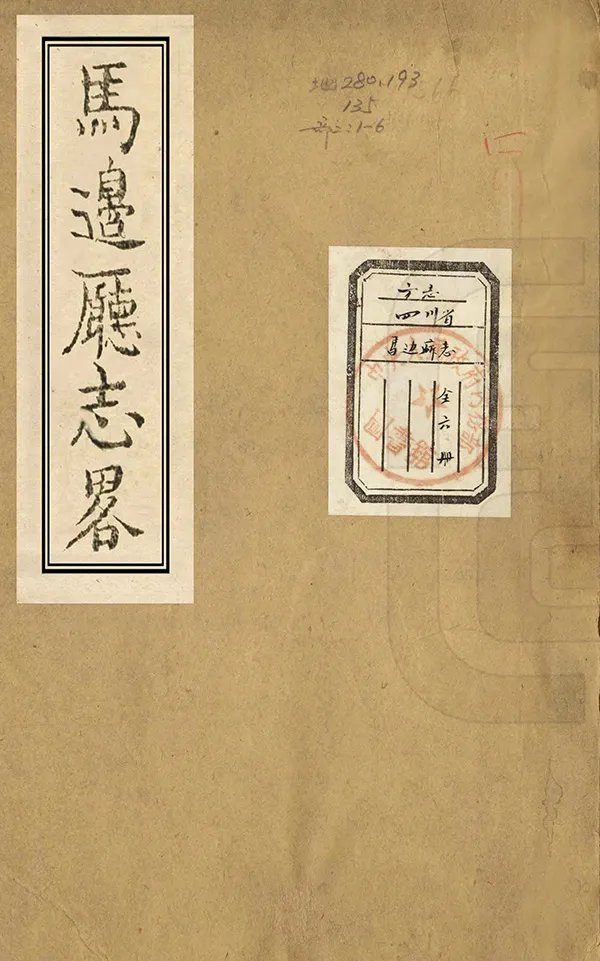 馬邊廳志畧
地280.193
135
部二:1-6
方志
四川省
马边厅志
全六册
圖書館